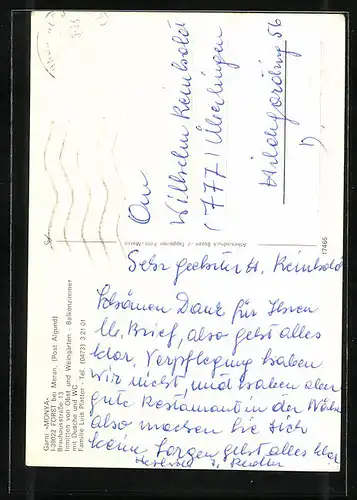 Garni «MONYA»
I-39022 FORST bei Meran, (Post Algund)
Brauhausstraße 13
Inmitten von Obst und Weingärten - Balkonzimmer
mit Dusche und WC
Familie Luis Platter - Tel. (0473) 3 21 01
Athesiadruck Bozen - J. Tappeiner Fotos, Meran
17466
An
Wilhelm Reinbold
(777) Überlingen
Hildegardring 56
D.
Sehr geehrter H. Reinbold
Schönen Dank für Ihren
lb. Brief, also geht alles
klar. Verpflegung haben
wir nicht, und haben aber
gute Restaurant in der Nähe
also machen Sie sich
keine Sorgen geht alles klar